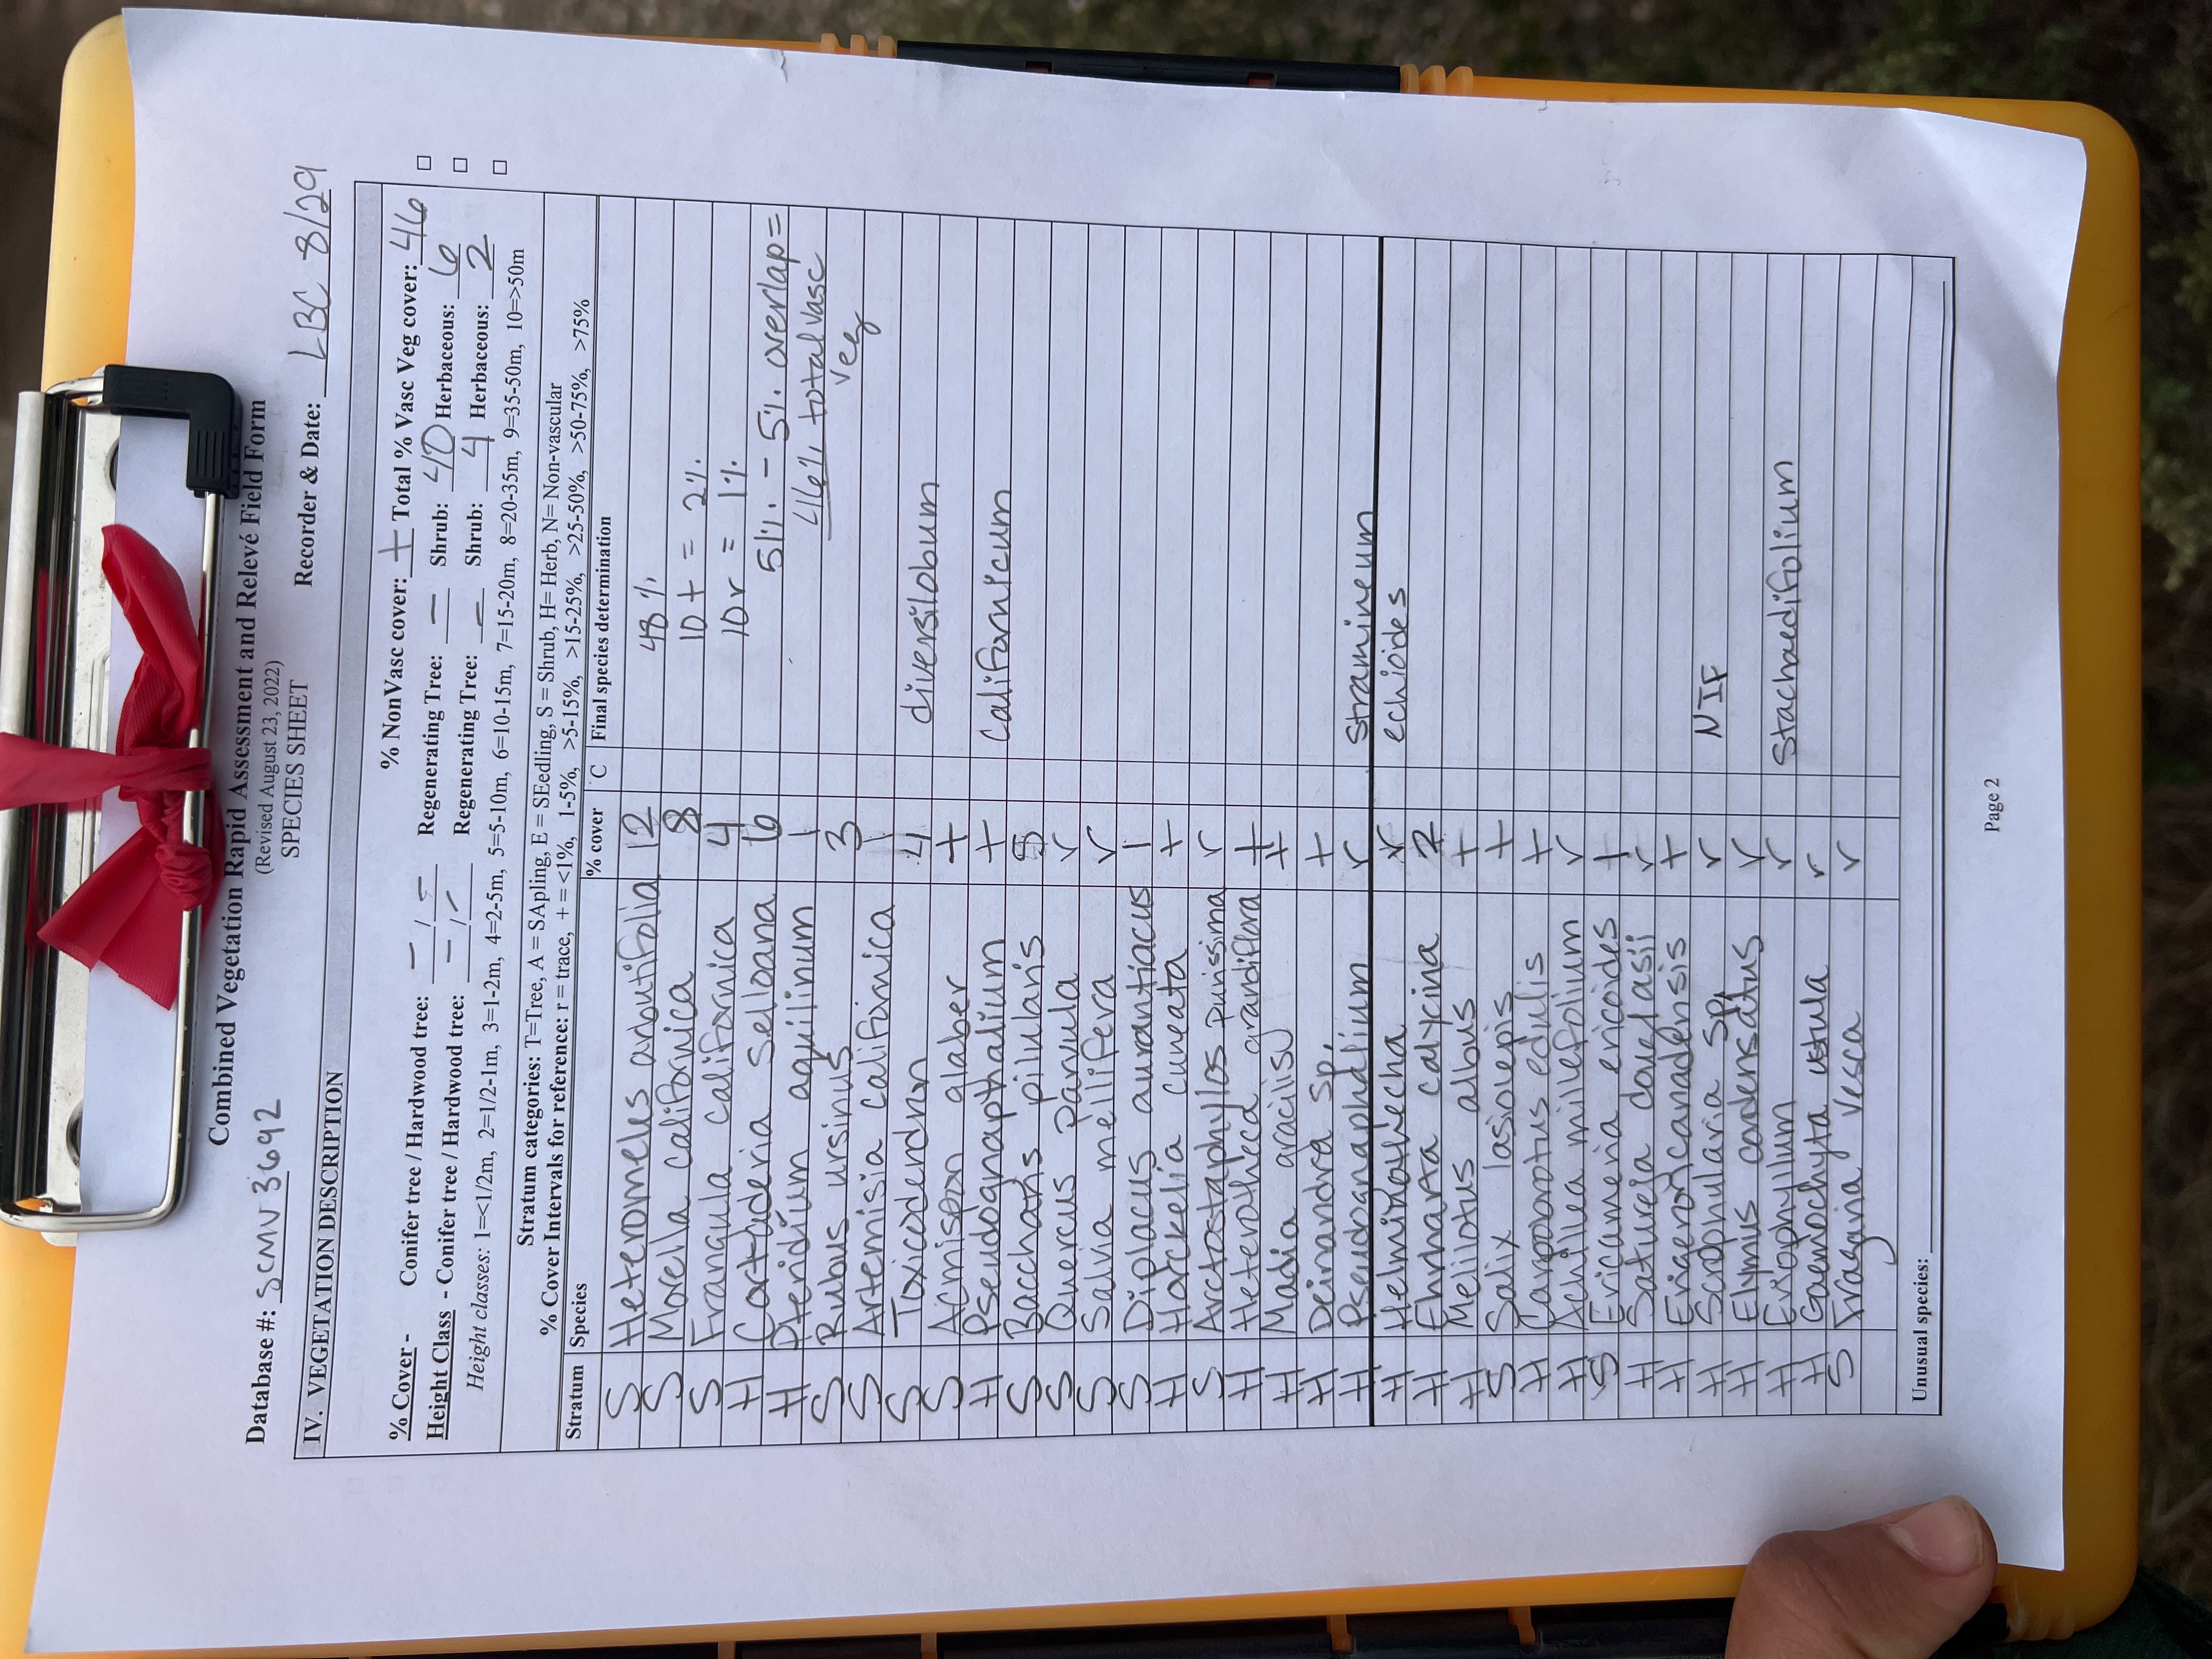 Combined Vegetation Rapid Assessment and Relevé Field Form
(Revised August 23, 2022)
SPECIES SHEET
Database #: SCMV 3692 Recorder & Date: LBC 8/29
IV. VEGETATION DESCRIPTION
% NonVasc cover: + Total % Vasc Veg cover: 46
% Cover - Conifer tree / Hardwood tree: - / - Regenerating Tree: - Shrub: 40 Herbaceous: 6 □
Height Class - Conifer tree / Hardwood tree: - / - Regenerating Tree: - Shrub: 4 Herbaceous: 2 □
Height classes: 1=<1/2m, 2=1/2-1m, 3=1-2m, 4=2-5m, 5=5-10m, 6=10-15m, 7=15-20m, 8=20-35m, 9=35-50m, 10=>50m □
Stratum categories: T=Tree, A = SApling, E = SEedling, S = Shrub, H= Herb, N= Non-vascular
% Cover Intervals for reference: r = trace, + = <1%, 1-5%, >5-15%, >15-25%, >25-50%, >50-75%, >75%
Stratum Species % cover C Final species determination
S Heteromeles arbutifolia 12 48%
S Morella californica 8 10+ = 2%
S Frangula californica 4 10r = 1%
H Cortaderia selloana 6 51% - 5% overlap =
H Pteridium aquilinum 1 46% total vasc
S Rubus ursinus 3 veg
S Artemisia californica 1
S Toxicodendron 4 diversilobum
S Acmispon glaber +
H Pseudognaphalium + Californicum
S Baccharis pilularis 5
S Quercus parvula r
S Salvia mellifera r
S Diplacus aurantiacus 1
H Horckelia cuneata +
S Arctostaphylos purissima r
H Heterotheca grandiflora +
H Madia gracilis +
H Deinandra sp. +
H Pseudognaphalium r Stramineum
H Helminothecha r echioides
H Ehrharta calycina 2
H Melilotus albus +
S Salix lasiolepis +
H Carpobrotus edulis +
H Achillea millefolium r
S Ericameria ericoides 1
H Satureja douglasii r
H Erigeron canadensis +
H Scrophularia sp. r NIF
H Elymus condensatus r
H Eriophyllum r Stachaedifolium
H Gaemochyta ustula r
S Fragaria vesca r
Unusual species:
Page 2